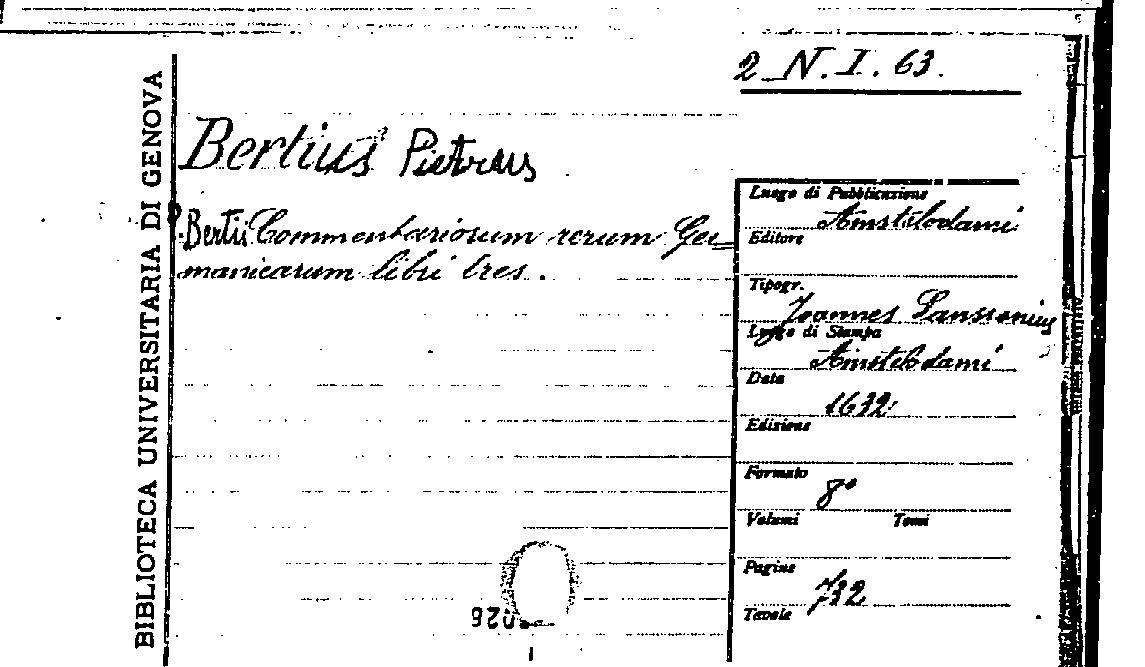 2 N. I. 63.
BIBLIOTECA UNIVERSITARIA DI GENOVA
Bertius Pietrus
P. Bertii Commentariorum rerum Ger=
manicarum libri tres.
Luogo di Pubblicazione
Amstelodami
Editore
Tipogr.
Joannes Janssonius
Luogo di Stampa
Amstelodami
Data
1632
Edizione
Formato
8°
Volumi Tomi
Pagine
732
Tavole